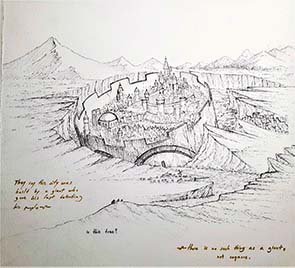 They say this city was
built by a giant who
gave his last defending
his people
is this true?
there is no such thing as a giant,
not anymore.